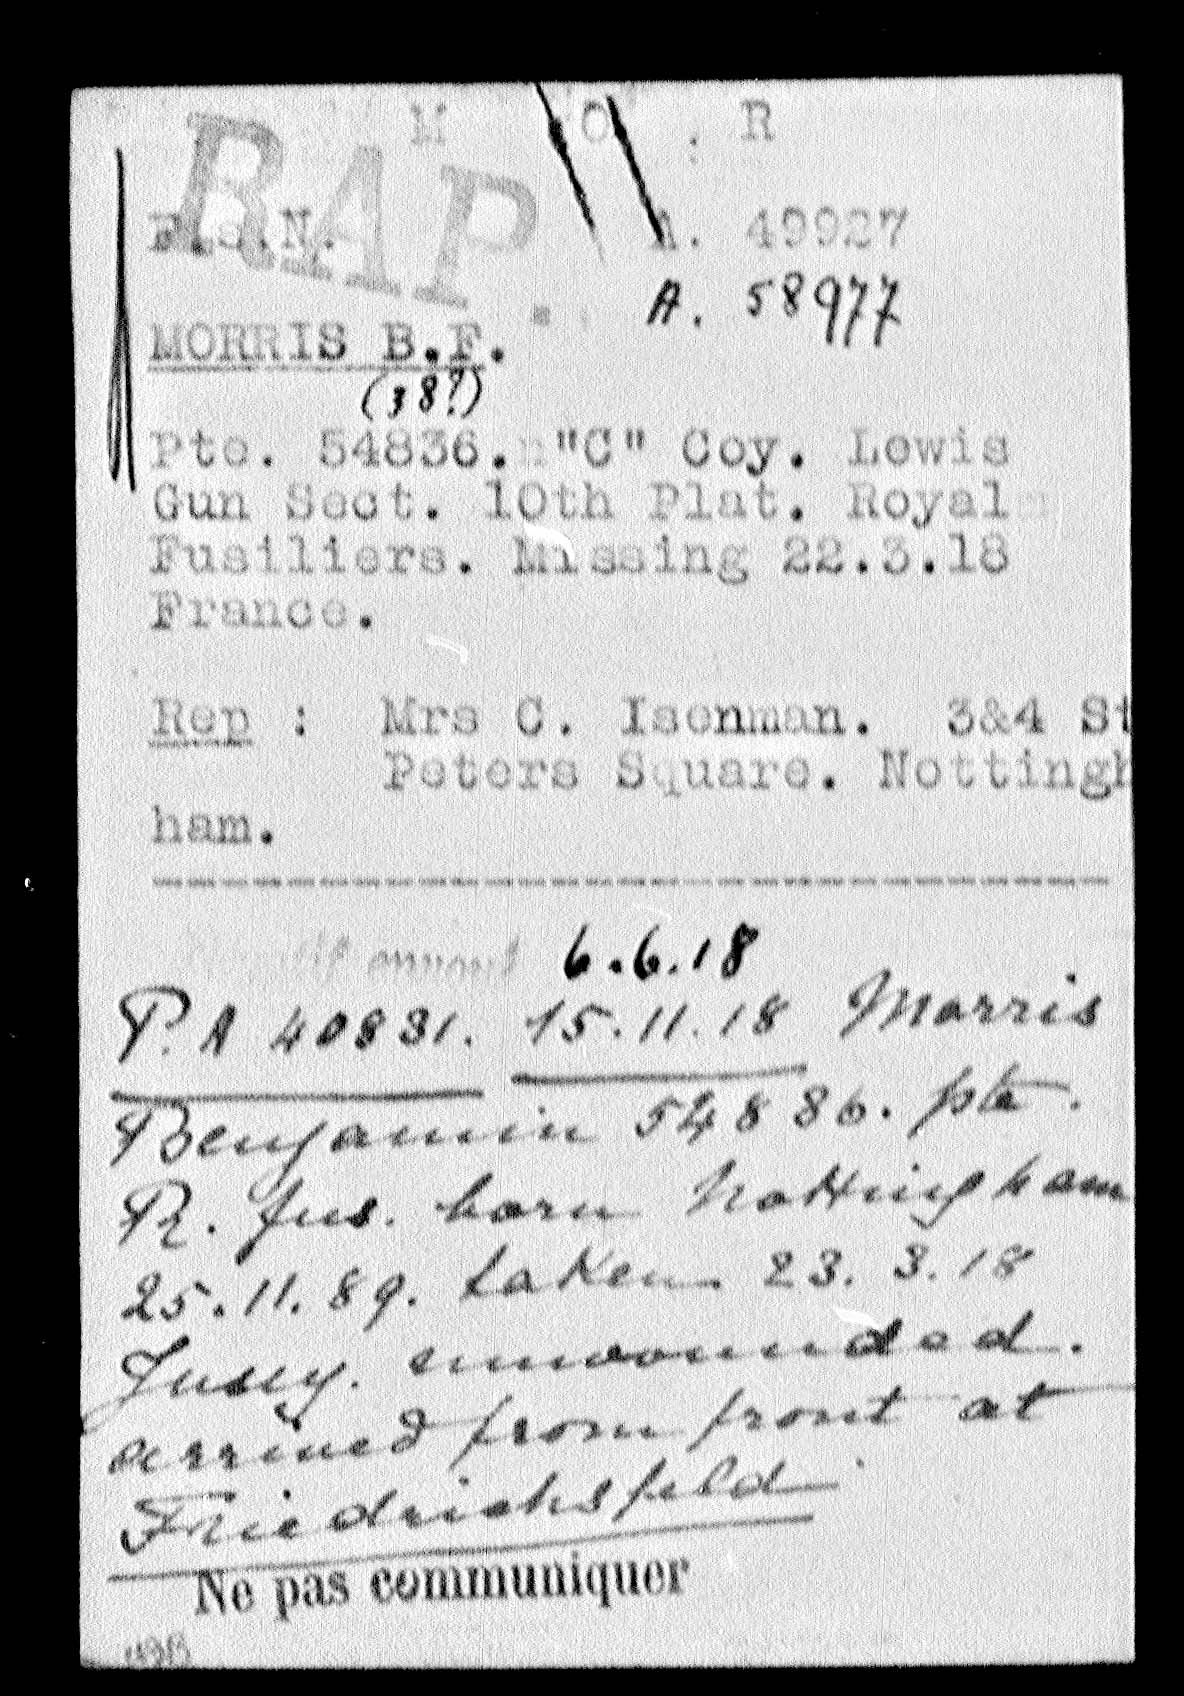 M O . R
RAP.
F.s.N. A. 49927
A. 58977
MORRIS B.F.
(38?)
Pte. 54836. "C" Coy. Lewis
Gun Sect. 10th Plat. Royal
Fusiliers. Missing 22.3.18
France.
Rep : Mrs C. Isenman. 3&4 St
Peters Square. Nottingh
ham.
-----------------------------
envoyé 6.6.18
P.A 40831. 15.11.18 Morris
Benjamin 54886. pte.
R. fus. born Nottingham
25.11.89. taken 23.3.18
Jussy. unwounded.
arrived from front at
Friedrichsfeld
Ne pas communiquer